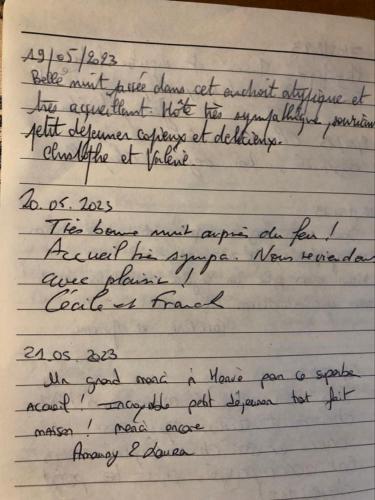 19/05/2023
Belle nuit passée dans cet endroit atypique et
très accueillant. Hôte très sympathique, souriant
petit déjeuner copieux et délicieux.
Christophe et Valérie.
20.05.2023
Très bonne nuit auprès du feu !
Accueil très sympa. Nous reviendons
avec plaisir !
Cécile et Franck
21.05.2023
Un grand merci à Hervé pour ce superbe
accueil ! Incroyable petit déjeuner tout fait
maison ! merci encore
Amaury & Laura